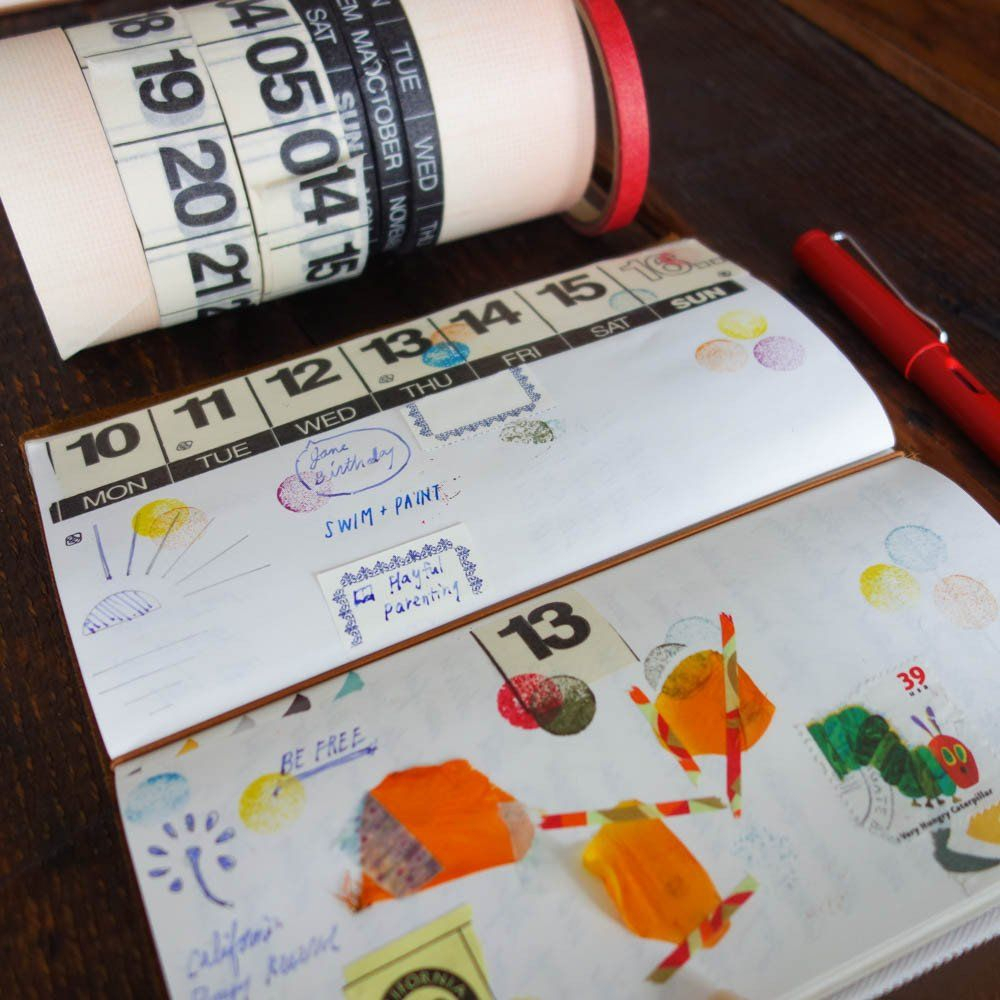 18
19
20
21
04
05
014
15
SAT
SUN
OCTOBER
TUE
WED
10
11
12
13
14
15
16
MON
TUE
WED
THU
FRI
SAT
SUN
Jane
Birthday
SWIM + PAINT
Hayful
parenting
13
BE FREE
39
USA
Very Hungry Caterpillar
California